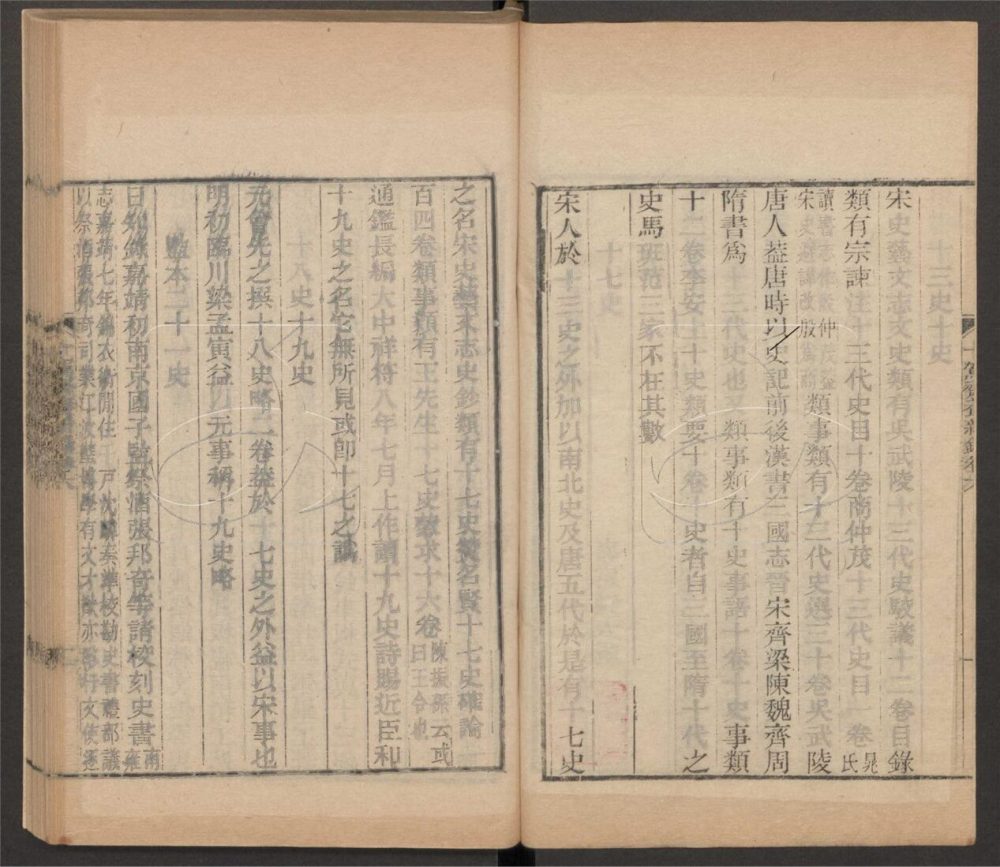 十三史十史
宋史藝文志文史類有吳武陵十三代史駮議十二卷目錄
類有宗諫注十三代史目十卷商仲茂十三代史目一卷晁氏
讀書志作殷仲茂蓋宋史避諱改殷為商類事類有十三代史選三十卷吳武陵
唐人蓋唐時以史記前後漢書三國志晉宋齊梁陳魏齊周
隋書爲十三代史也又類事類有十史事語十卷十史事類
十二卷李安上十史類要十卷十史者自三國至隋十代之
史馬班范三家不在其數
十七史
宋人於十三史之外加以南北史及唐五代於是有十七史
之名宋史藝文志史鈔類有十七史贊名賢十七史確論一
百四卷類事類有王先生十七史蒙求十六卷陳振孫云或曰王令也
通鑑長編大中祥符八年七月上作讀十九史詩賜近臣和
十九史之名它無所見或卽十七之譌
八史十九史
元曾先之撰十八史略二卷蓋於十七史之外益以宋事也
明初臨川梁孟寅益以元事稱十九史略
監本二十一史
日知錄嘉靖初南京國子監祭酒張邦奇等請校刻史書南雍
志嘉靖七年錦衣衛閒住千戶沈麟奏準校勘史書禮部議
以祭酒張邦奇司業江汝璧博學有文才猷亦裕行文使逐